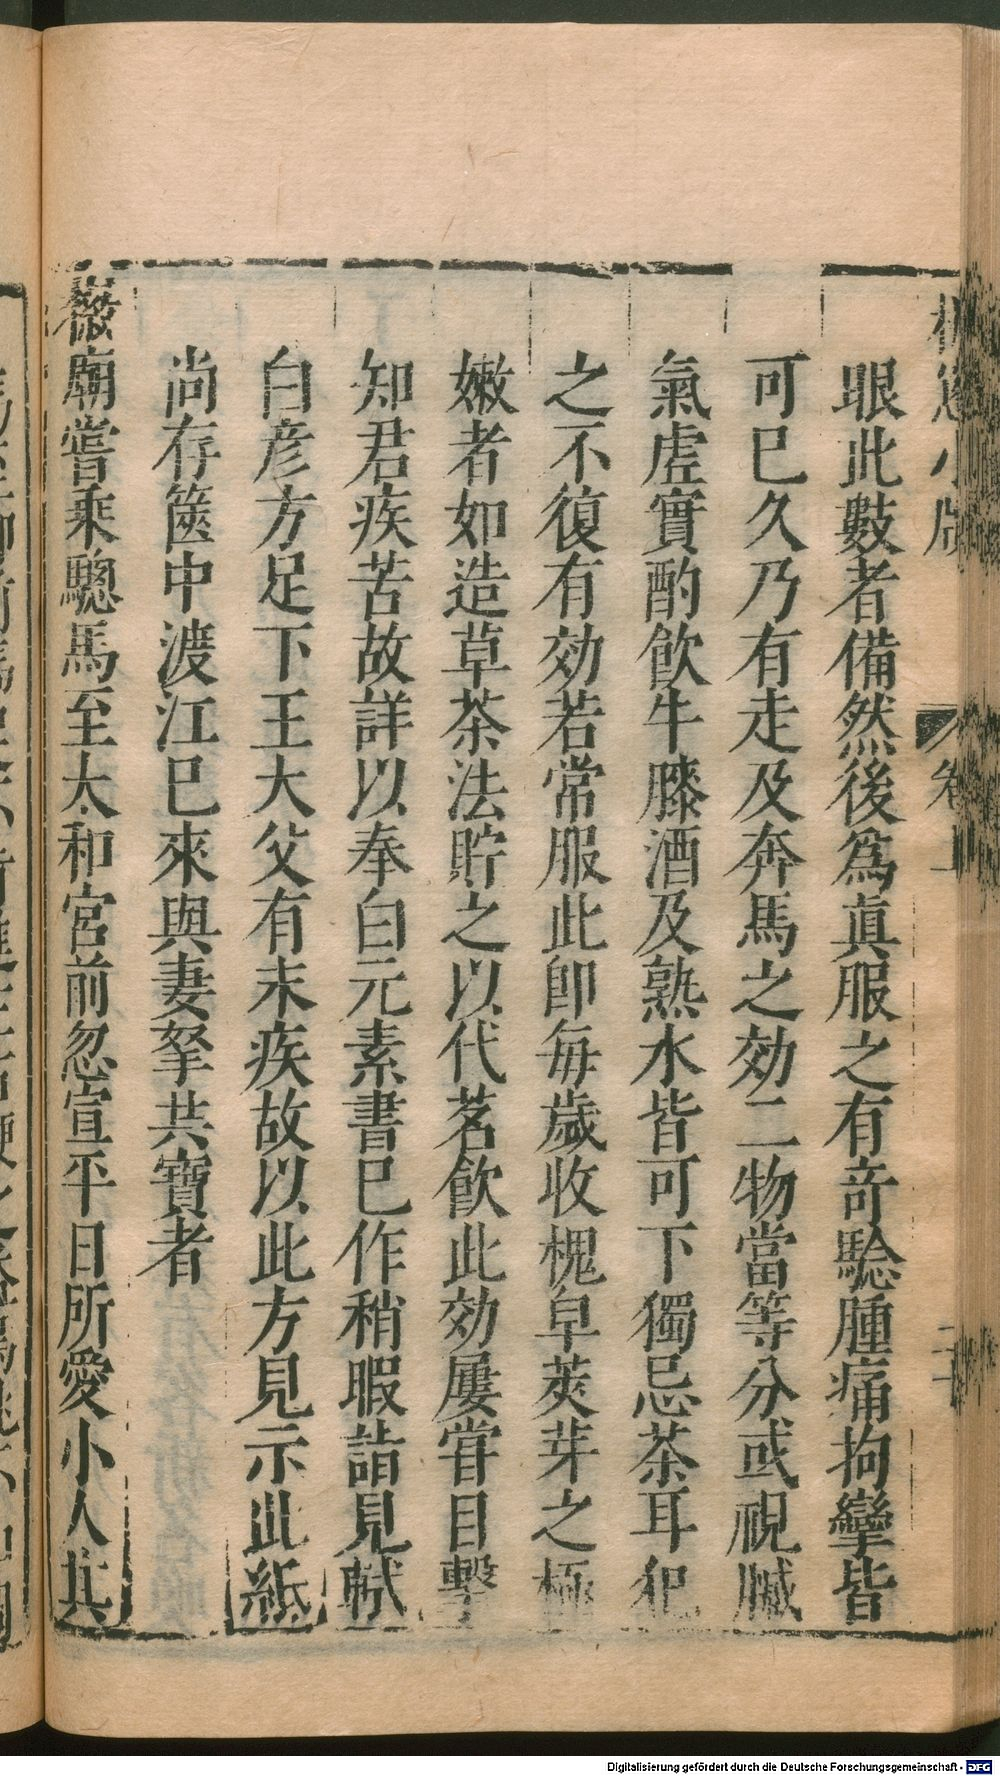 眼此數者備然後爲真服之有竒驗腫痛拘攣皆
可巳久乃有走及奔馬之効二物當等分或視臟
氣虗實酌飮牛膝酒及熟水皆可下獨忌茶耳犯
之不復有効若常服此卽每歲收槐皁莢芽之極
嫩者如造草茶法貯之以代茗飮此効屢甞目擊
知君疾苦故詳以奉白元素書巳作稍暇詣見献
白彦方足下王大父有末疾故以此方見示此紙
尚存篋中渡江巳來與妻孥共寶者
㣲廟嘗乘驄馬至太和宮前忽宣平日所愛小人其
卷上
Digitalisierung gefördert durch die Deutsche Forschungsgemeinschaft - DFG